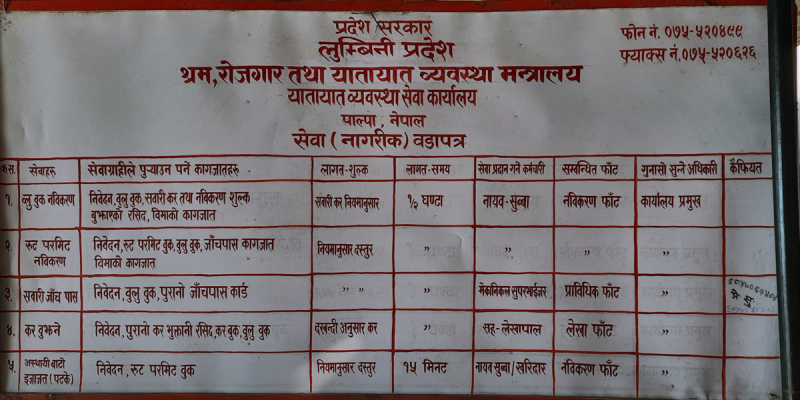 प्रदेश सरकार
लुम्बिनी प्रदेश
श्रम, रोजगार तथा यातायात व्यवस्था मन्त्रालय
यातायात व्यवस्था सेवा कार्यालय
पाल्पा, नेपाल
सेवा (नागरीक) वडापत्र
फोन नं. ०७५-५२०४९९
फ्याक्स नं. ०७५-५२०६२६
क्र.स. सेवाहरु सेवाग्राहीले पुर्‍याउन पर्ने कागजातहरु लागत-शुल्क लागत-समय सेवा प्रदान गर्ने कर्मचारी सम्बन्धित फाँट गुनासो सुन्ने अधिकारी कैफियत
१. ब्लु वुक नविकरण निवेदन, वुलु वुक, सवारी कर तथा नविकरण शुल्क सवारी कर नियमानुसार १/२ घण्टा नायव-सुब्बा नविकरण फाँट कार्यालय प्रमुख
बुझाएको रसिद, विमाको कागजात
२. रुट परमिट निवेदन, रुट परमिट वुक, वुलु वुक, जाँचपास कागजात नियमानुसार दस्तुर " " " "
नविकरण विमाको कागजात
३. सवारी जाँच पास निवेदन, वुलु वुक, पुरानो जाँचपास कार्ड " " " मेकानिकल सुपरभाईजर प्राविधिक फाँट "
४. कर वुझ्ने निवेदन, पुरानो कर भुक्तानी रसिद, कर वुक, वुलु वुक दरबन्दी अनुसार कर " सह-लेखापाल लेखा फाँट "
५. अस्थायी बाटो निवेदन, रुट परमिट वुक नियमानुसार दस्तुर १५ मिनट नायव सुब्बा/खरिदार नविकरण फाँट "
इजाजत (पटके)